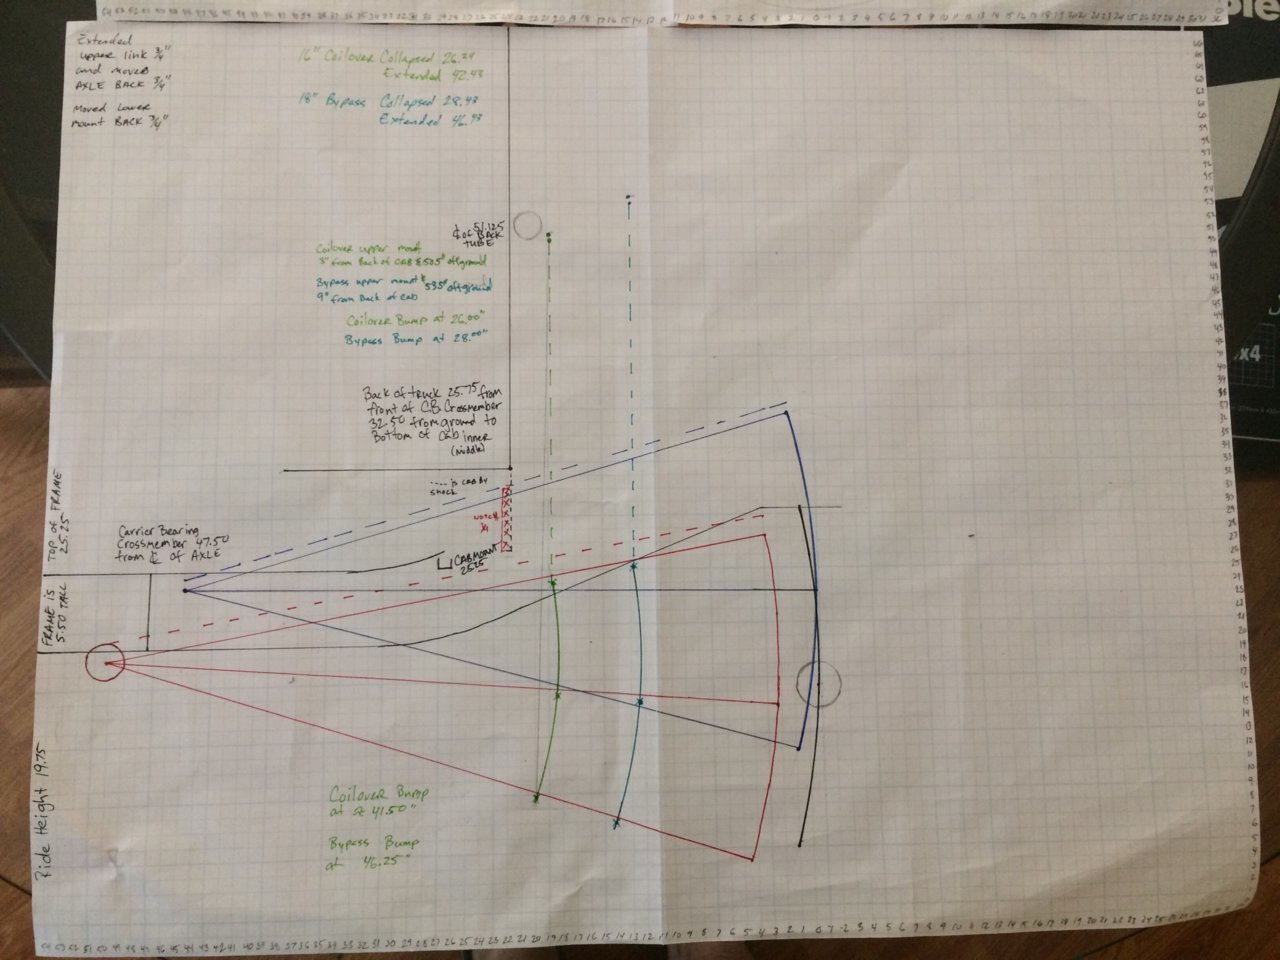 Extended
upper link 3/4"
and moved
AXLE BACK 3/4"
Moved Lower
mount BACK 3/4"
16" Coilover Collapsed 26.29
Extended 42.43
18" Bypass Collapsed 28.43
Extended 46.43
51.125
℄ of BACK
TUBE
Coilover upper mount
3" from Back of CAB & 50.5" off ground
Bypass upper mount & 53.5" off ground
9" from Back of cab
Coilover Bump at 26.00"
Bypass Bump at 28.00"
Back of truck 25.75 from
front of C.B. Crossmember
32.50 from ground to
Bottom of Cab inner
(middle)
---- is CAB By
shock
NOTCH
CAB MOUNT
25.25
Carrier Bearing
Crossmember 47.50
from ℄ of AXLE
TOP OF FRAME
25.25
FRAME IS
5.50 TALL
Ride Height 19.75
Coilover Bump
at ≈ 41.50"
Bypass Bump
at 46.25"
x4